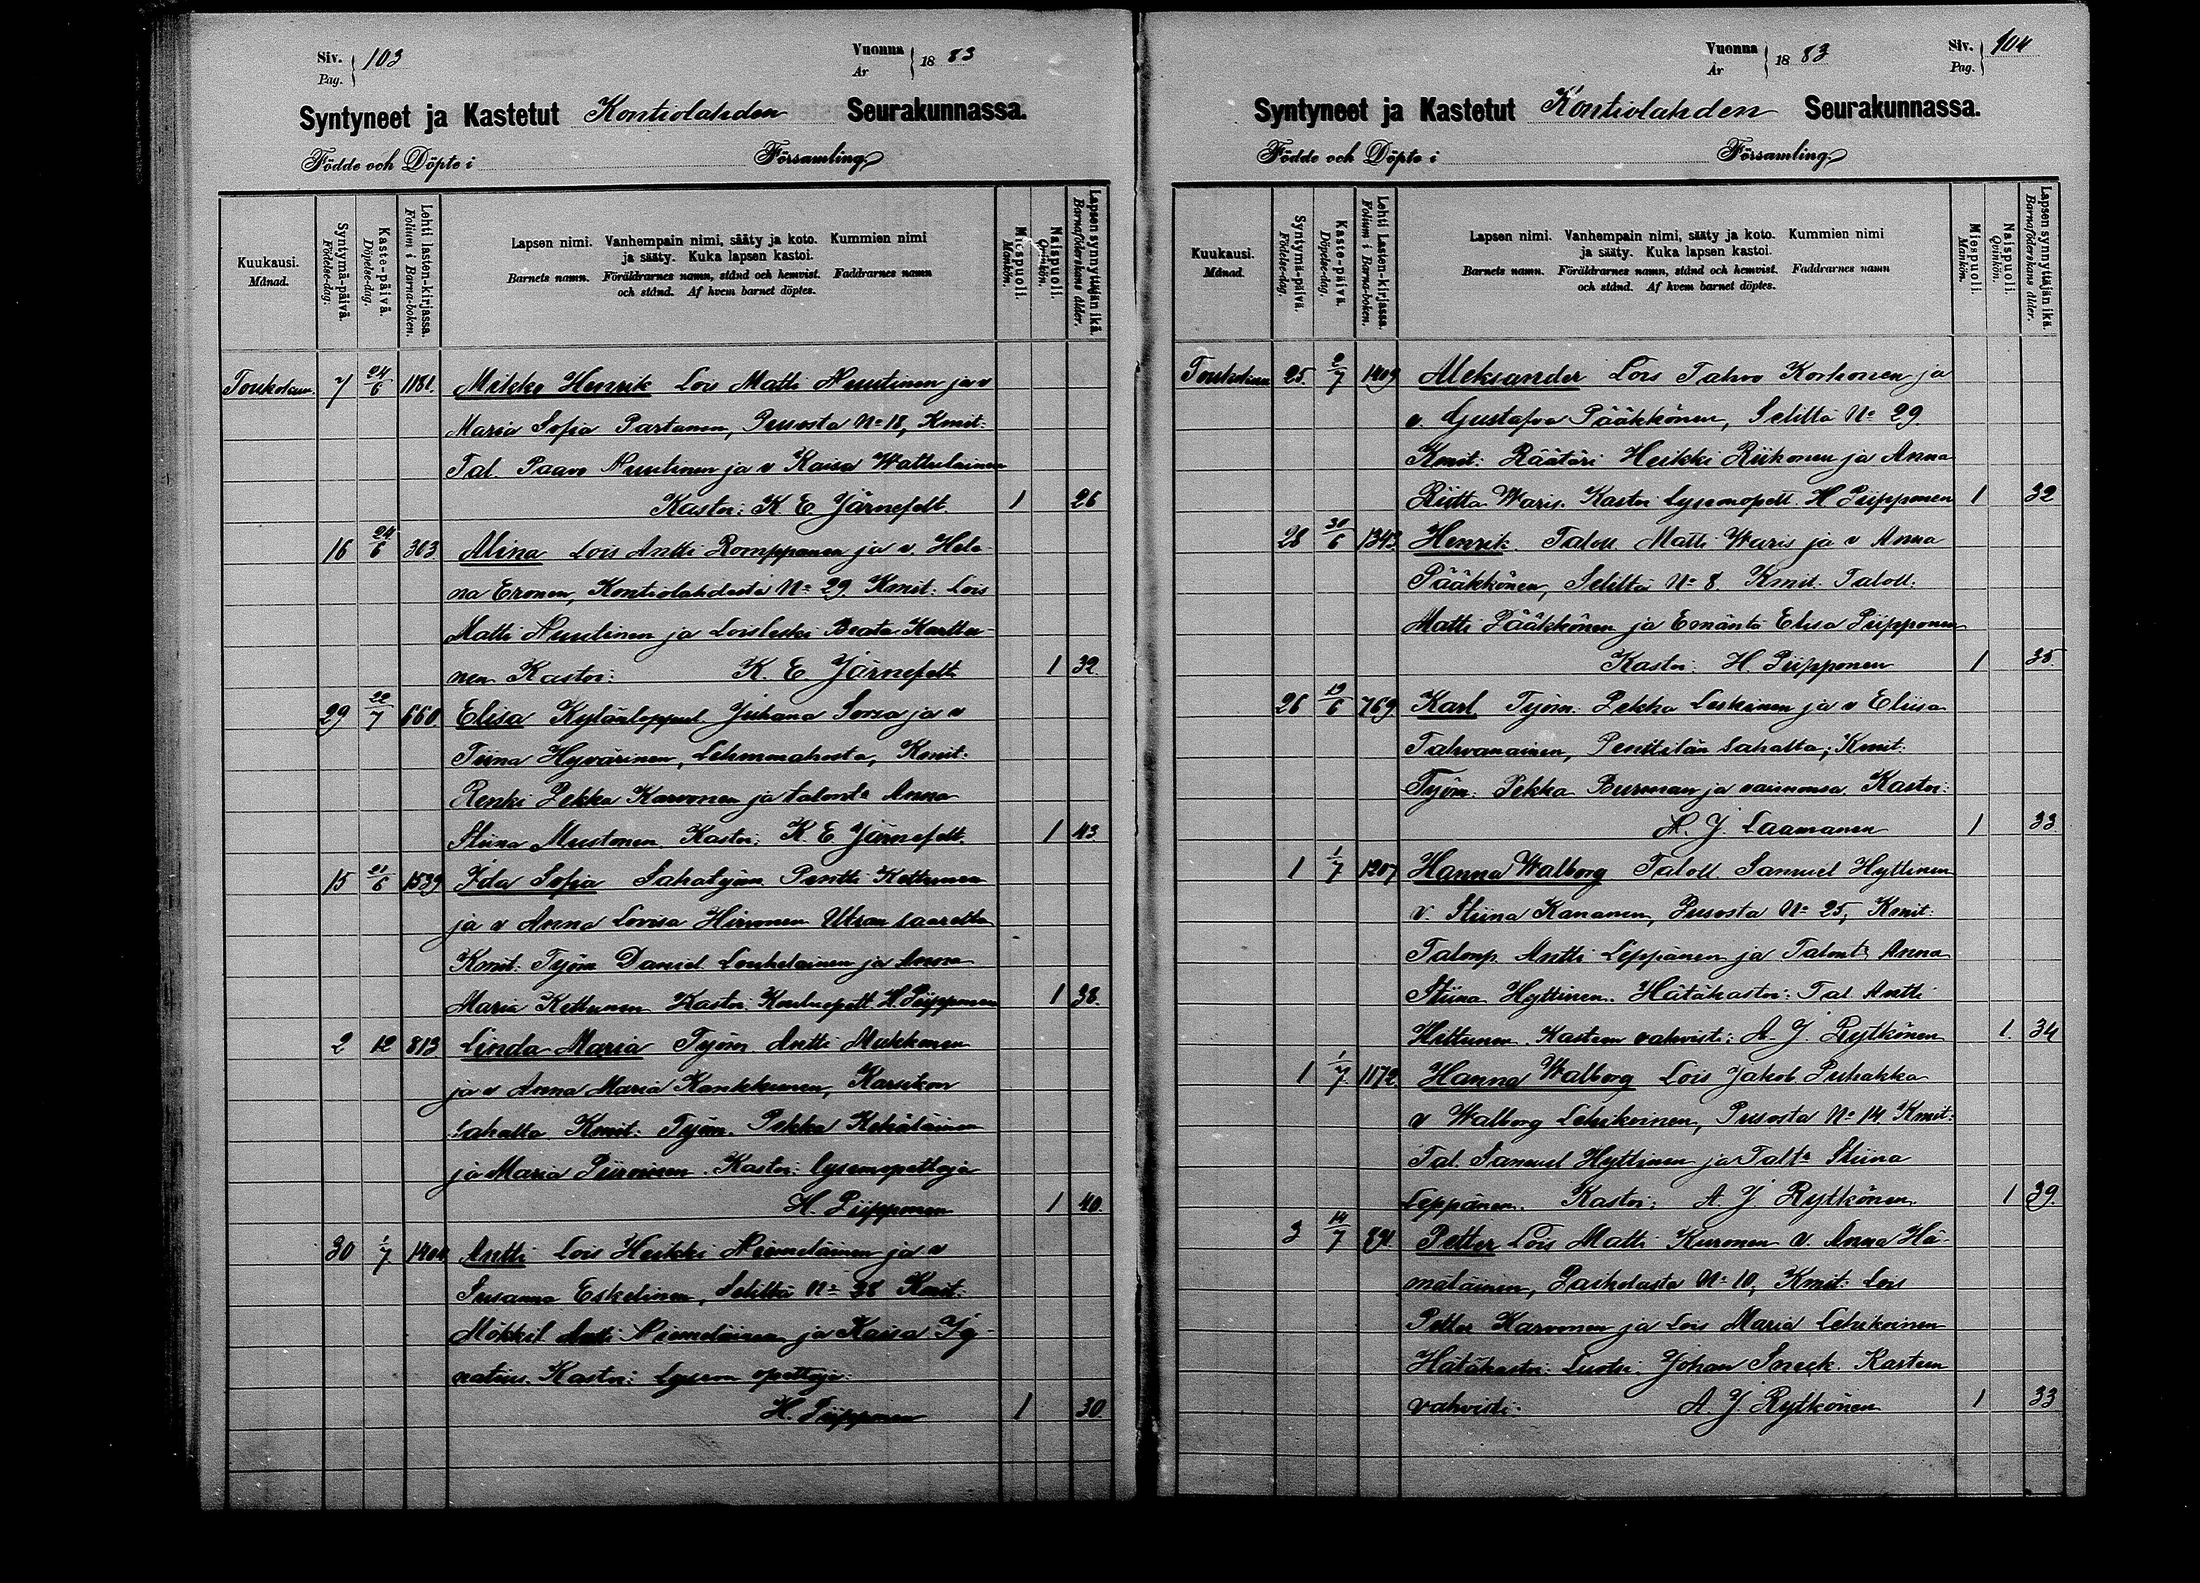 Siv. 103
Pag.
Vuonna 1883
År
Syntyneet ja Kastetut Kontiolahden Seurakunnassa.
Födde och Döpte i Församling
Kuukausi.
Månad.
Syntymä-päivä.
Födelse-dag.
Kaste-päivä.
Döpelse-dag.
Lehti lasten-kirjassa.
Folium i Barna-boken.
Lapsen nimi. Vanhempain nimi, sääty ja koto. Kummien nimi
ja sääty. Kuka lapsen kastoi.
Barnets namn. Föräldrarnes namn, stånd och hemvist. Faddrarnes namn
och stånd. Af hvem barnet döptes.
Miespuoli.
Mankön.
Naispuoli.
Qvinkön.
Lapsen synnyttäjän ikä.
Barnaföderskans ålder.
Toukokuu. 7 24/6 1181. Mikko Henrik Lois Matti Nuutinen ja v
Maria Sofia Partanen, Pusosta No 18, Kmit:
Tal. Paavo Nuutinen ja v Kaisa Wattulainen
Kastoi: K E Järnefelt. 1 26
16 24/6 303 Alina Lois Antti Romppanen ja v. Hele-
na Eronen, Kontiolahdesta No 29 Kmit: Lois
Matti Nuutinen ja Loisleski Beata Karttu
nen Kastoi: K. E Järnefelt 1 32.
29 22/7 660. Elisa Kylänloppul. Juhana Sorsa ja v
Tiina Hyvärinen, Lehmonahosta, Kmit:
Renki Pekka Karvonen ja talontr Anna
Stiina Mustonen. Kastoi: K. E Järnefelt. 1 43.
15 21/6 1539 Ida Sofia Sahatyöm Pentti Kettunen
ja v Anna Lovisa Hirvonen Utran saarelta
Kmit: Työm Daniel Louhelainen ja Anna
Maria Kettunen Kastoi: Kouluopett H. Piipponen 1 38.
2 12 813 Linda Maria Työm. Antti Mukkonen
ja v Anna Maria Kankkunen, Karsikon
sahalta Kmit: Työm. Pekka Kehäläinen
ja Maria Piiroinen. Kastoi: Lyseonopettaja
H. Piipponen 1 40.
30 1/7 1400 Antti Lois Heikki Niemeläinen ja v
Susanna Eskelinen, Seliltä No 38 Kmit.
Mökkil Antti Niemeläinen ja Kaisa Ig-
natius. Kastoi: Lyseon opettaja
H. Piipponen 1 30
Vuonna 1883
År
Siv. 104
Pag.
Syntyneet ja Kastetut Kontiolahden Seurakunnassa.
Födde och Döpte i Församling
Kuukausi.
Månad.
Syntymä-päivä.
Födelse-dag.
Kaste-päivä.
Döpelse-dag.
Lehti Lasten-kirjassa.
Folium i Barna-boken.
Lapsen nimi. Vanhempain nimi, sääty ja koto. Kummien nimi
ja sääty. Kuka lapsen kastoi.
Barnets namn. Föräldrarnes namn, stånd och hemvist. Faddrarnes namn
och stånd. Af hvem barnet döptes.
Miespuoli.
Mankön.
Naispuoli.
Qvinkön.
Lapsen synnyttäjän ikä.
Barnaföderskans ålder.
Toukokuu 25. 2/7 1409 Aleksander Lois Tahvo Korhonen ja
v. Gustafva Pääkkönen, Seliltä No 29.
Kmit: Räätäri Heikki Riikonen ja Anna
Riitta Waris. Kastoi Lyseonopett. H Piipponen 1 32
28 30/6 1343 Henrik. Taloll. Matti Waris ja v Anna
Pääkkönen, Seliltä No 8. Kmit. Taloll.
Matti Pääkkönen ja Emäntä Elisa Piipponen
Kastoi: H. Piipponen 1 35
26 19/6 769. Karl Työm. Pekka Leskinen ja v Eliisa
Tahvanainen, Penttilän sahalta; Kmit:
Työm: Pekka Burman ja vaimonsa. Kastoi:
A. J. Laamanen 1 33
1 1/7 1207 Hanna Walborg Taloll Samuel Hyttinen
v. Stiina Kananen, Pusosta No 25, Kmit:
Talonp. Antti Leppänen ja Talontr Anna
Stiina Hyttinen. Hätäkastoi: Tal Antti
Hettunen. Kasteen vahvisti: A. J. Rytkönen 1. 34
1 1/7 1172 Hanna Walborg Lois Jakob Puhakka
v Walborg Lehikoinen, Pusosta No 14. Kmit:
Tal. Samuel Hyttinen ja Taltr Stiina
Leppänen. Kastoi: A. J. Rytkönen. 1 39.
3 14/7 891. Petter Lois Matti Kuronen v. Anna Hä-
mäläinen, Paiholasta No 10, Kmit: Lois
Petter Karvonen ja Lois Maria Lehikoinen
Hätäkastoi: Luotsi. Johan Sneck. Kasteen
vahvisti: A. J. Rytkönen 1 33